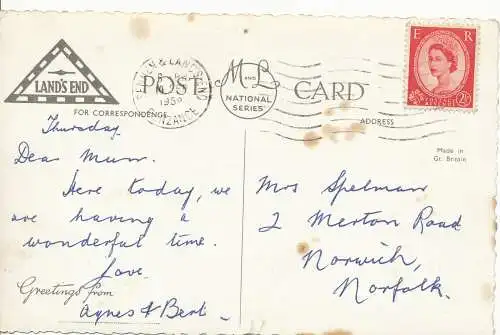 LAND'S END
POST
M and L
NATIONAL
SERIES
CARD
E R
FOR CORRESPONDENCE
ADDRESS
Made in
Gt. Britain
Thursday
Dear Mum.
Here today, we
are having a
wonderful time.
Love.
Greetings from
Agnes & Bert.
Mrs Spelman
2 Merton Road
Norwich,
Norfolk.
PENZANCE